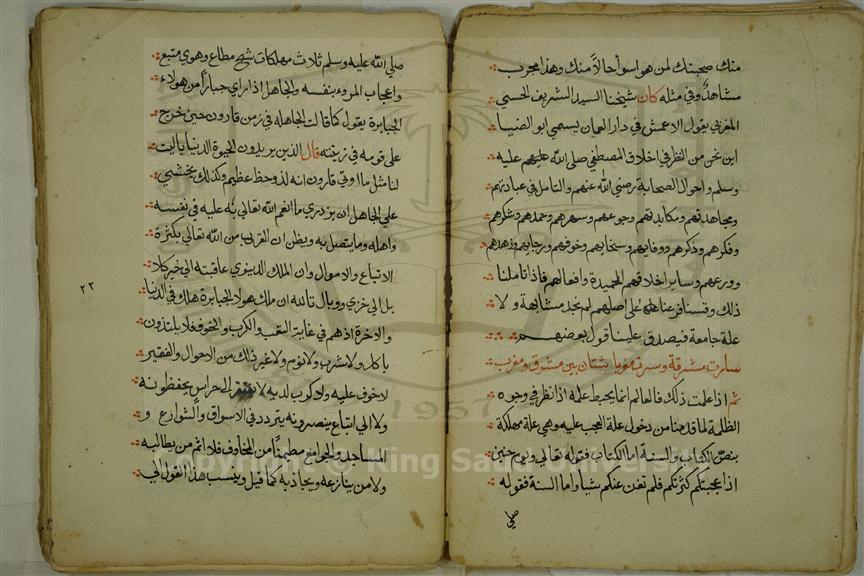 منك صحبتك لمن هو اسوأ حالاً منك وهذا مجرب
مشاهد وفي مثله كان شيخنا السيد الشريف الحسني
المغربي يقول الاعمش في دار العميان يسمي ابو الضيا
اين نحن من النظر في اخلاق المصطفي صلي الله عليه
وسلم واحوال الصحابة رضي الله عنهم والتامل في عبادتهم
ومجاهدتهم ومكابدتهم وجوعهم وسهرهم وحمدهم وشكرهم
وفكرهم وذكرهم ووفايهم وسخايهم وخوفهم ورجايهم وزهدهم
وورعهم وساير اخلاقهم الحميدة وافعالهم فاذا تاملنا
ذلك وقسنا فرعنا علي اصلهم لم نجد مشابهة ولا
علة جامعة فيصدق علينا قول بعضهم
سارت مشرقة وسرت مغربا شتان بين مشرق ومغرب
ثم اذا علمت ذلك فالعالم انما يحيط عمله اذا نظر في وجوه
الظلمة لما قدمنا من دخول علة العجب عليه وهي علة مهلكة
بنص الكتاب والسنة اما الكتاب فقوله تعالي ويوم حنين
اذا عجبتكم كثرتكم فلم تغن عنكم شيا واما السنة فقوله
صلي
صلي الله عليه وسلم ثلاث مهلكات شح مطاع وهوي متبع
واعجاب المروء بنفسه والجاهل اذا راي جباراً من هولاء
الجبابرة يقول كما قالت الجاهله في زمن قارون حين خرج
علي قومه في زينته قال الذين يريدون الحيوة الدنيا ياليت
لنا مثل ما اوتي قارون انه لذو حظ عظيم وكذلك يخشي
علي الجاهل ان يزدري ما انعم الله تعالي به عليه في نفسه
واهله وما يتصل به ويظن ان القرب من الله تعالي بكثرة
الاتباع والاموال وان الملك الدنيوي عاقبته الي خير كلا
بل الي خزي ووبال تالله ان ملك هولا الجبابرة هلك في الدنيا
٢٢
والاخرة اذ هم في غاية التعب والكرب والخوف فلا يلتذون
باكل ولا شرب ولا نوم ولا غير ذلك من الاحوال والفقير
لا خوف عليه ولا كروب لديه لا يفتقر الي حراس يحفظونه
ولا الي اتباع ينصرونه يتردد في الاسواق والشوارع و
المساجد والجوامع مطمئناً من المخاوف فلا ثم من يطالبه
ولا من ينازعه ويجاذبه كما قيل وينسب هذا القول الي
1957
Copyright © King Saud University